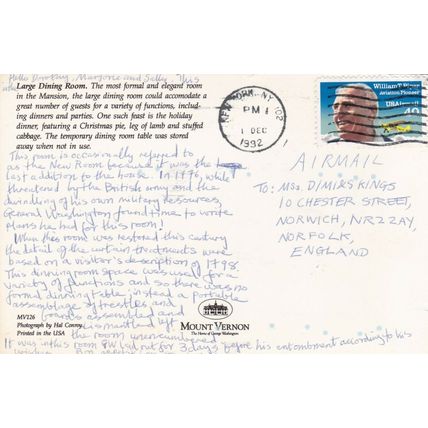 Hello Dorothy, Marjorie and Sally. This
Large Dining Room. The most formal and elegant room
in the Mansion, the large dining room could accomodate a
great number of guests for a variety of functions, includ-
ing dinners and parties. One such feast is the holiday
dinner, featuring a Christmas pie, leg of lamb and stuffed
cabbage. The temporary dining room table was stored
away when not in use.
This room is occasionally referred to
as the New Room because it was the
last addition to the house. In 1776, while
threatened by the British army and the
dwindling of his own military resources,
General Washington found time to write
plans he had for this room!
When this room was restored this century
the detail of the curtain treatments were
based on a visitor's description of 1798.
This dinning room space was used for a
variety of functions and so there was no
formal dinning table, instead a portable
assemblage of trestles and
boards assembled and
dismantled left
the room unencumbered.
It was in this room GW laid out for 3 days before his entombment according to his
MV126
Photograph by Hal Conroy
Printed in the USA
MOUNT VERNON
The Home of George Washington
NEW YORK, NY 102
PM 1
1 DEC
1992
William T. Piper
Aviation Pioneer
USAirmail
40
AIRMAIL
TO: Mss. DIMIKS KINGS
10 CHESTER STREET,
NORWICH, NR22AY,
NORFOLK,
ENGLAND